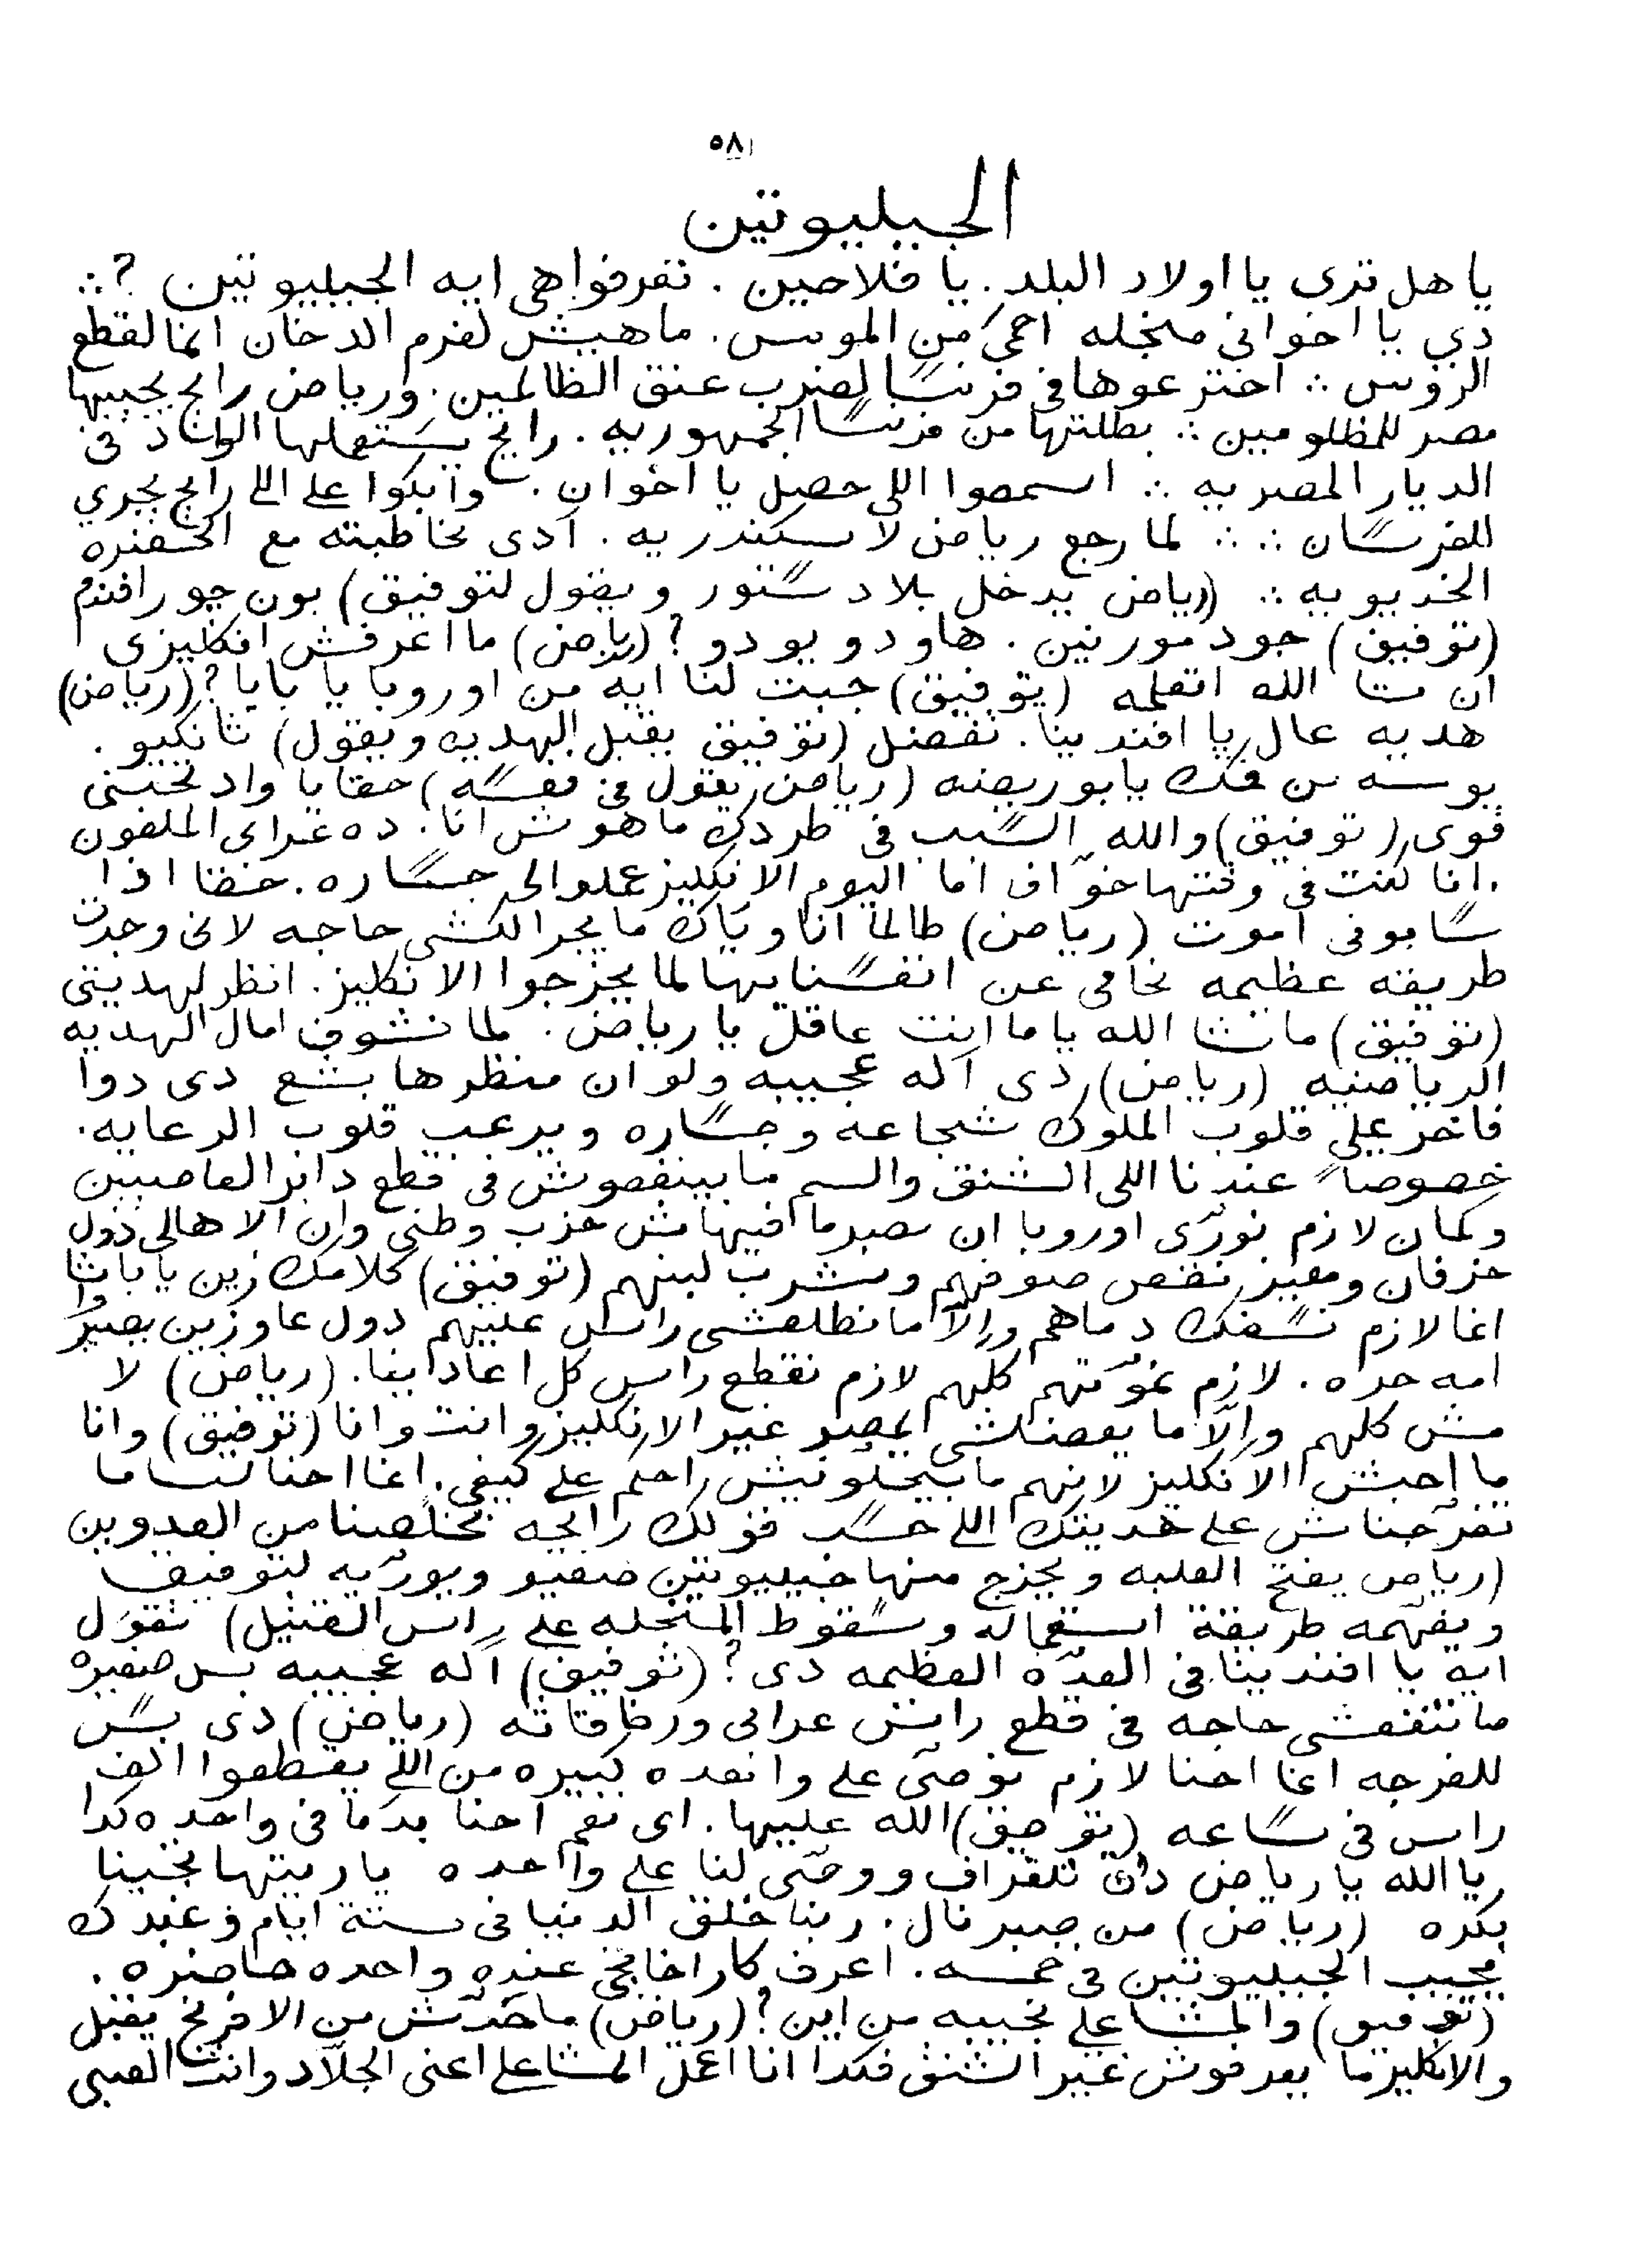 ٥٨
الجيليوتين
يا هل ترى يا اولاد البلد. يا فلاحين. تعرفوا هى ايه الجيليوتين ؟ ∴
دي يا اخوانى منجله احمى من الموس. ماهيش لفرم الدخان انما لقطع
الروس ∴ اخترعوها فى فرنسا لضرب عنق الظالمين. ورياض رايح يجيبها
مصر للمظلومين ∴ بطلتها من فرنسا الجمهوريه. رايح يستعملها الواد فى
الديار المصريه ∴ اسمعوا اللى حصل يا اخوان. وابكوا على اللى رايح يجري
للفرسان ∴ ∴ لما رجع رياض لاسكندريه. آدى مخاطبته مع الحضره
الخديويه ∴ (رياض يدخل بلا دستور ويقول لتوفيق) بون جور افندم
(توفيق) جود مورنين. هاو دو يو دو ؟ (رياض) ما اعرفش انكليزى
ان شا الله اتعلمه (توفيق) جبت لنا ايه من اوروبا يا بابا ؟ (رياض)
هديه عال يا افندينا. تفضل (توفيق يقبل الهديه ويقول) ثانكيو.
بوسه من فمك يا بو ريضه (رياض يقول فى نفسه) حقا يا واد تحبنى
قوى (توفيق) والله السبب فى طردك ماهوش انا. ده عرابى الملعون
. انا كنت فى وقتها خوّاف اما اليوم الانكليز عملوا لى جساره. حقا اذا
سابونى اموت (رياض) طالما انا وياك ما يجرالكشى حاجه لانى وجدت
طريقه عظيمه نحامى عن انفسنا بها لما يخرجوا الانكليز. انظر لهديتى
(توفيق) ماشا الله ياما انت عاقل يا رياض. لما نشوف امال الهديه
الرياضيه (رياض) دى آله عجيبه ولو ان منظرها بشع دى دوا
فاخر على قلوب الملوك شجاعه وجساره ويرعب قلوب الرعايه.
خصوصاً عندنا اللى الشنق والسم ما بينفعوش فى قطع دابر العاصيين
وكمان لازم نورّى اوروبا ان مصر ما فيهاش حزب وطنى وان الاهالى دول
خرفان ومعيز نقص صوفهم ونشرب لبنهم (توفيق) كلامك زين يا باشا
انما لازم نسفك دماهم وإلّا ما نطلعشى راس عليهم دول عاوزين يصيروا
امه حره. لازم نموّتهم كلهم لازم نقطع راس كل اعادينا. (رياض) لا
مش كلهم وإلّا ما يفضلشى بمصر غير الانكليز وانت وانا (توفيق) وانا
ما احبش الانكليز لانهم ما بيخلّونيش احكم على كيفى. انما احنا لسا ما
تفرّجناش على هديتك اللى حسب قولك رايحه تخلّصنا من العدوين
(رياض يفتح العلبه ويخرج منها جيليوتين صغير ويورّيه لتوفيق
ويفهّمه طريقة استعماله وسقوط المنجله على راس القتيل) تقول
ايه يا افندينا فى العدّه العظيمه دى ؟ (توفيق) آله عجيبه بس صغيره
ما تنفعشى حاجه فى قطع راس عرابى ورفاقاته (رياض) دى بس
للفرجه انما احنا لازم نوصّى على واحده كبيره من اللى يقطعوا الف
راس فى ساعه (توفيق) الله عليها. اى نعم احنا بدنا فى واحده كدا
يا الله يا رياض دق تلغراف ووصّى لنا على واحده يا ريتها تجينا
بكره (رياض) من صبر نال. ربنا خلق الدنيا فى ستة ايام وعبدك
يجيب الجيليوتين فى خمسه. اعرف كاراخانجى عنده واحده حاضره.
(توفيق) والمشاعلى نجيبه من اين ؟ (رياض) ما حدّش من الافرنج يقبل
والانكليز ما يعرفوش غير الشنق فكدا انا اعمل المشاعلى اعنى الجلّاد وانت الصبى